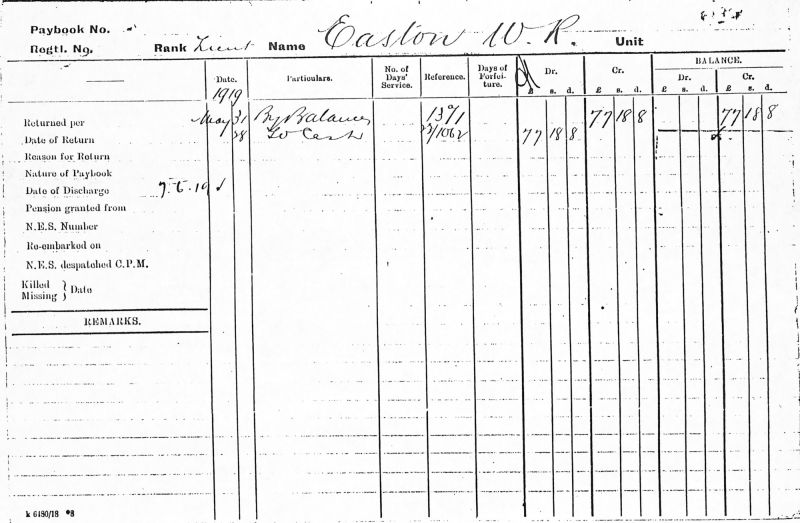 Paybook No.
Regtl. No. Rank Lieut Name Easton W. R. Unit
Date. Particulars. No. of Days' Service. Reference. Days of Forfeiture. Dr. Cr. BALANCE.
Dr. Cr.
£ s. d. £ s. d. £ s. d. £ s. d.
1919
Returned per May 31 By Balance 13/1 77 18 8 77 18 8
Date of Return 28 To Cash 23/1062 77 18 8
Reason for Return
Nature of Paybook
Date of Discharge 7.6.19
Pension granted from
N.E.S. Number
Re-embarked on
N.E.S. despatched C.P.M.
Killed
Missing } Date
REMARKS.
k 6480/18